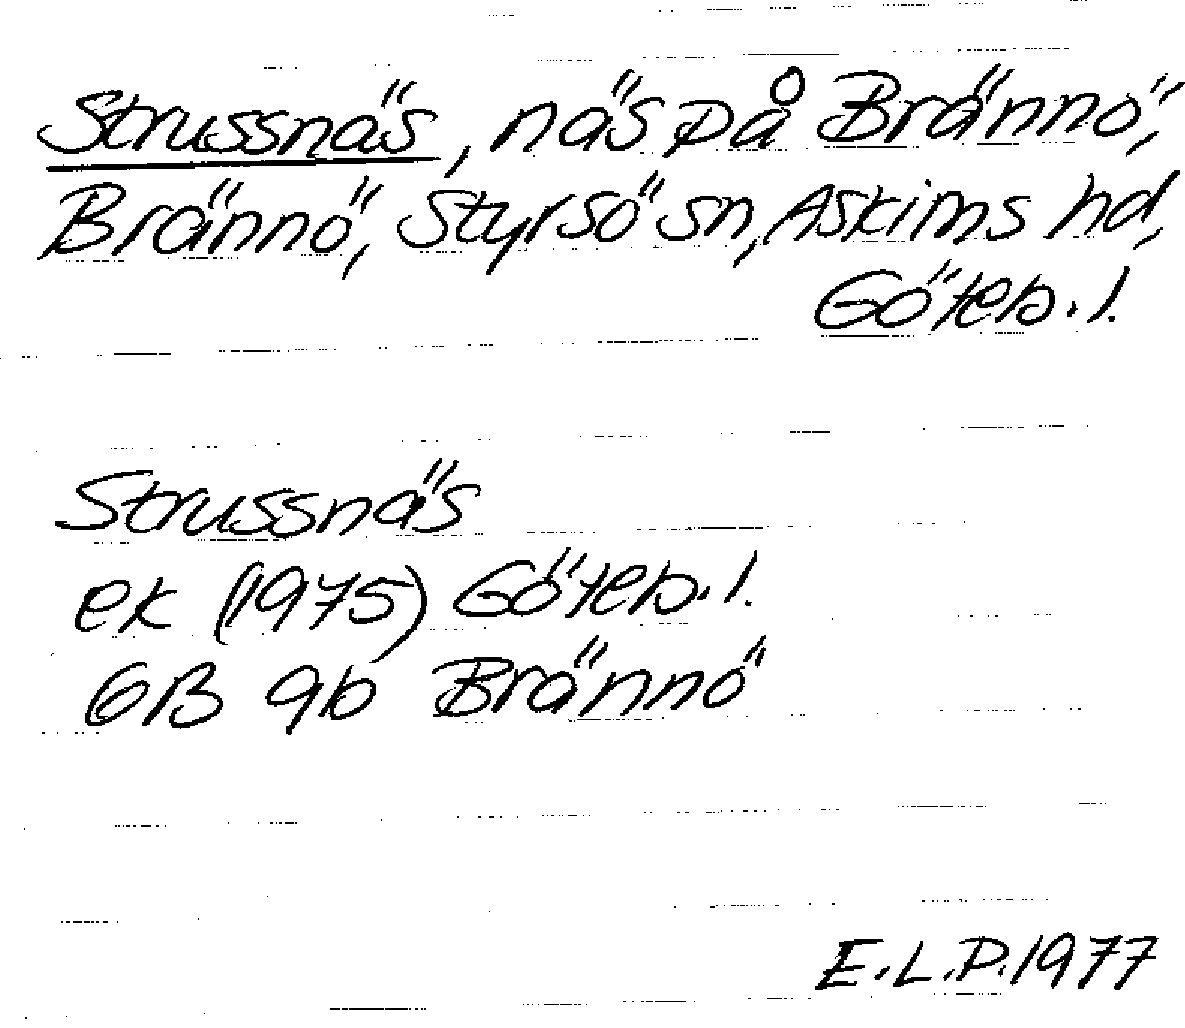 Strussnäs, näs på Brännö,
Brännö, Styrsö sn, Askims hd,
Göteb. l.
Strussnäs
ek (1975) Göteb. l.
6B 9b Brännö
E.L.P. 1977